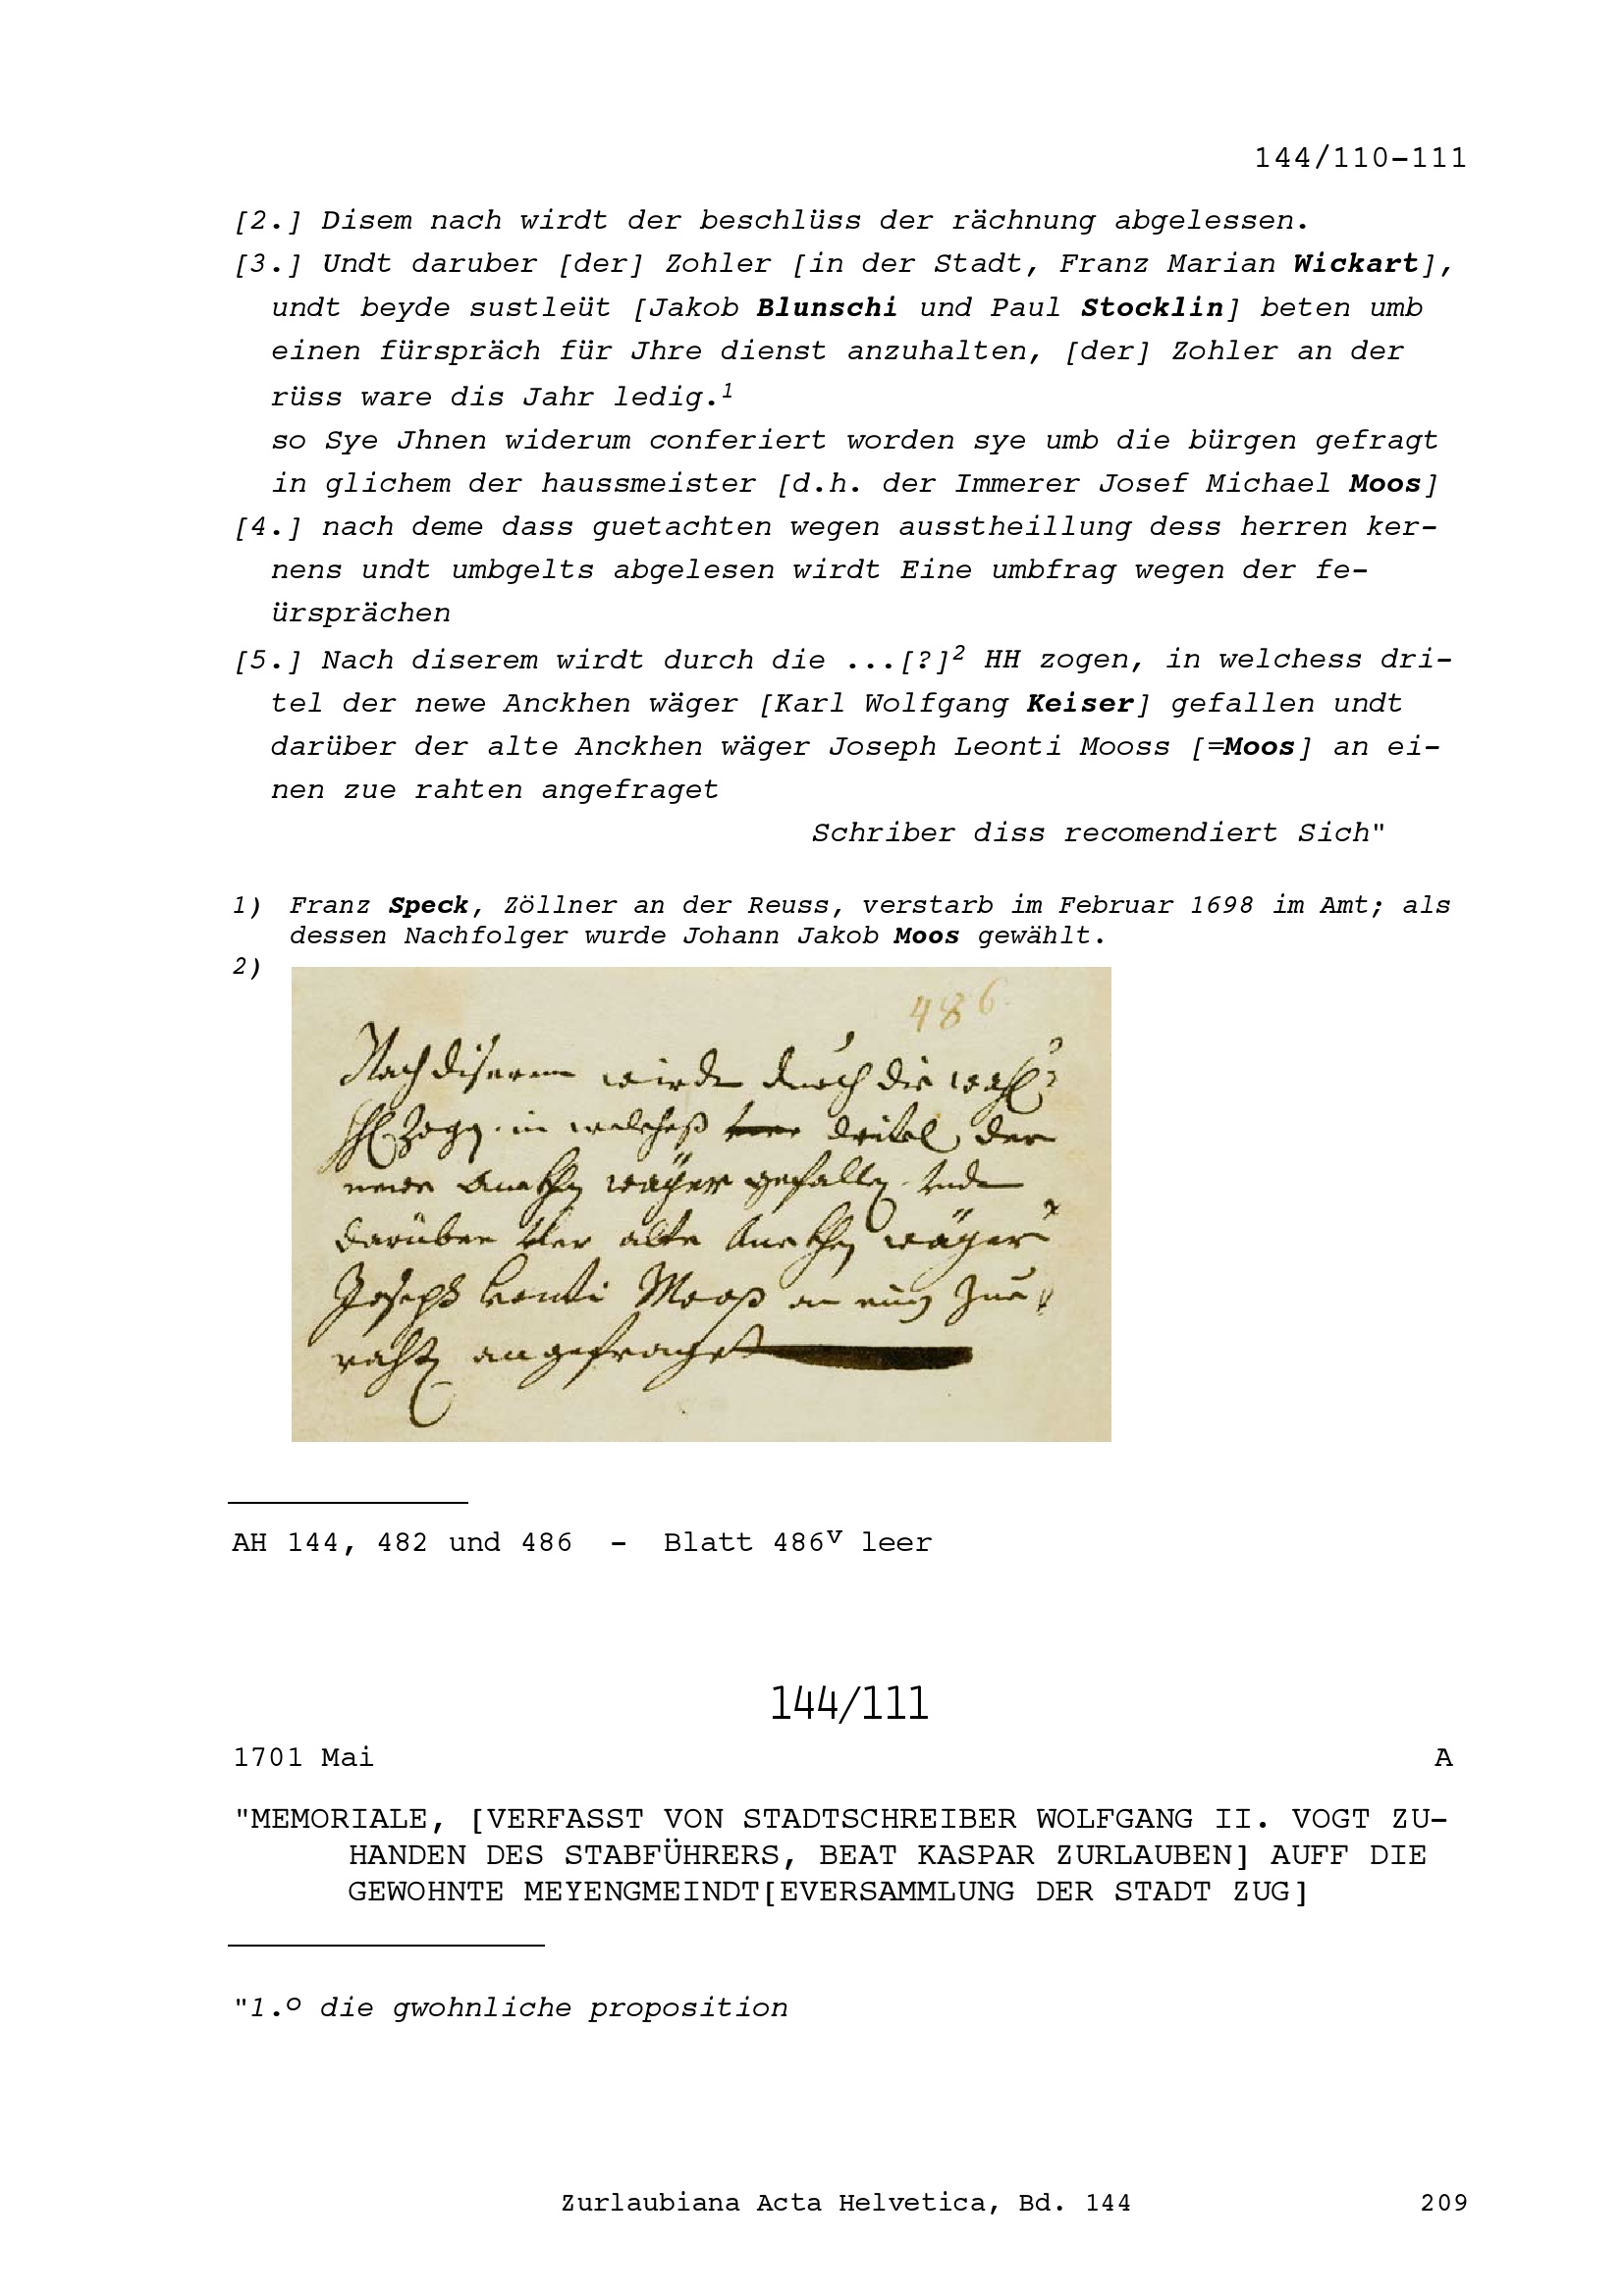 144/110-111
[2.] Disem nach wirdt der beschlüss der rächnung abgelessen.
[3.] Undt daruber [der] Zohler [in der Stadt, Franz Marian Wickart],
undt beyde sustleüt [Jakob Blunschi und Paul Stocklin] beten umb
einen fürspräch für Jhre dienst anzuhalten, [der] Zohler an der
rüss ware dis Jahr ledig.1
so Sye Jhnen widerum conferiert worden sye umb die bürgen gefragt
in glichem der haussmeister [d.h. der Immerer Josef Michael Moos]
[4.] nach deme dass guetachten wegen ausstheillung dess herren ker-
nens undt umbgelts abgelesen wirdt Eine umbfrag wegen der fe-
ürsprächen
[5.] Nach diserem wirdt durch die ...[?]2 HH zogen, in welchess dri-
tel der newe Anckhen wäger [Karl Wolfgang Keiser] gefallen undt
darüber der alte Anckhen wäger Joseph Leonti Mooss [=Moos] an ei-
nen zue rahten angefraget
Schriber diss recomendiert Sich"
1) Franz Speck, Zöllner an der Reuss, verstarb im Februar 1698 im Amt; als
dessen Nachfolger wurde Johann Jakob Moos gewählt.
2)
486.
Nach diserem wirdt durch die
HH zogen in welcheß dritel der
newe Anckhen wäger gefallen undt
darüber der alte Anckhen wäger
Joseph Leonti Mooß an einen zue
rahten angefraget
AH 144, 482 und 486 - Blatt 486v leer
144/111
1701 Mai A
"MEMORIALE, [VERFASST VON STADTSCHREIBER WOLFGANG II. VOGT ZU-
HANDEN DES STABFÜHRERS, BEAT KASPAR ZURLAUBEN] AUFF DIE
GEWOHNTE MEYENGMEINDT[EVERSAMMLUNG DER STADT ZUG]
"1.o die gwohnliche proposition
Zurlaubiana Acta Helvetica, Bd. 144 209